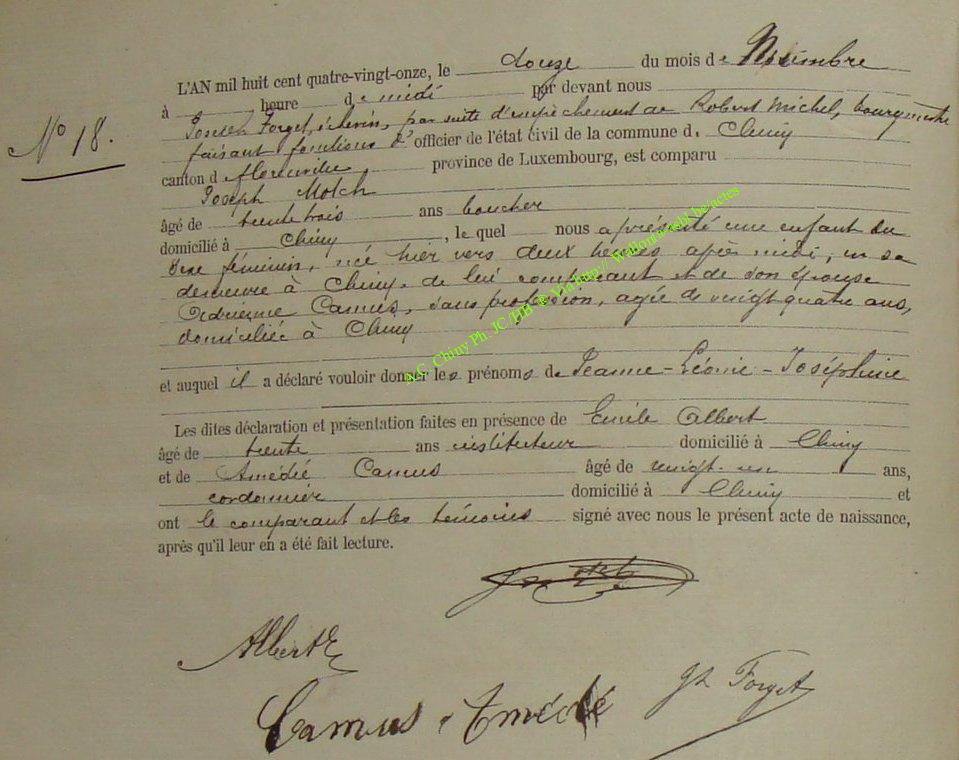 L'AN mil huit cent quatre-vingt-onze, le douze du mois de Novembre
à heure de midi par devant nous
Joseph Forget, échevin, par suite d'empêchement de Robert Michel, bourgmestre
faisant fonctions d'officier de l'état civil de la commune d. Chiny
canton d florenville province de Luxembourg, est comparu
Joseph Motch
N° 18.
âgé de trente trois ans boucher
domicilié à Chiny, le quel nous a présenté une enfant du
sexe féminin, né hier vers deux heures après midi, en sa
demeure à Chiny, de lui comparant et de son épouse
Camus, sans profession, agée de veingt quatre ans,
domiciliée à Chiny
et auquel il a déclaré vouloir donner les prénoms de Jeanne-Léonie-Joséphine
Les dites déclaration et présentation faites en présence de Emile Albert
âgé de trente ans instituteur domicilié à Chiny
et de Amédié Camus âgé de veingt-un ans,
cordonnier domicilié à Chiny et
ont le comparant et les témoins signé avec nous le présent acte de naissance,
après qu'il leur en a été fait lecture.
Albert E
Camus Amédé
Jh Forget
A.C. Chiny Ph. JC HB @ Via http:\\Wallonia.ebl.be/actes